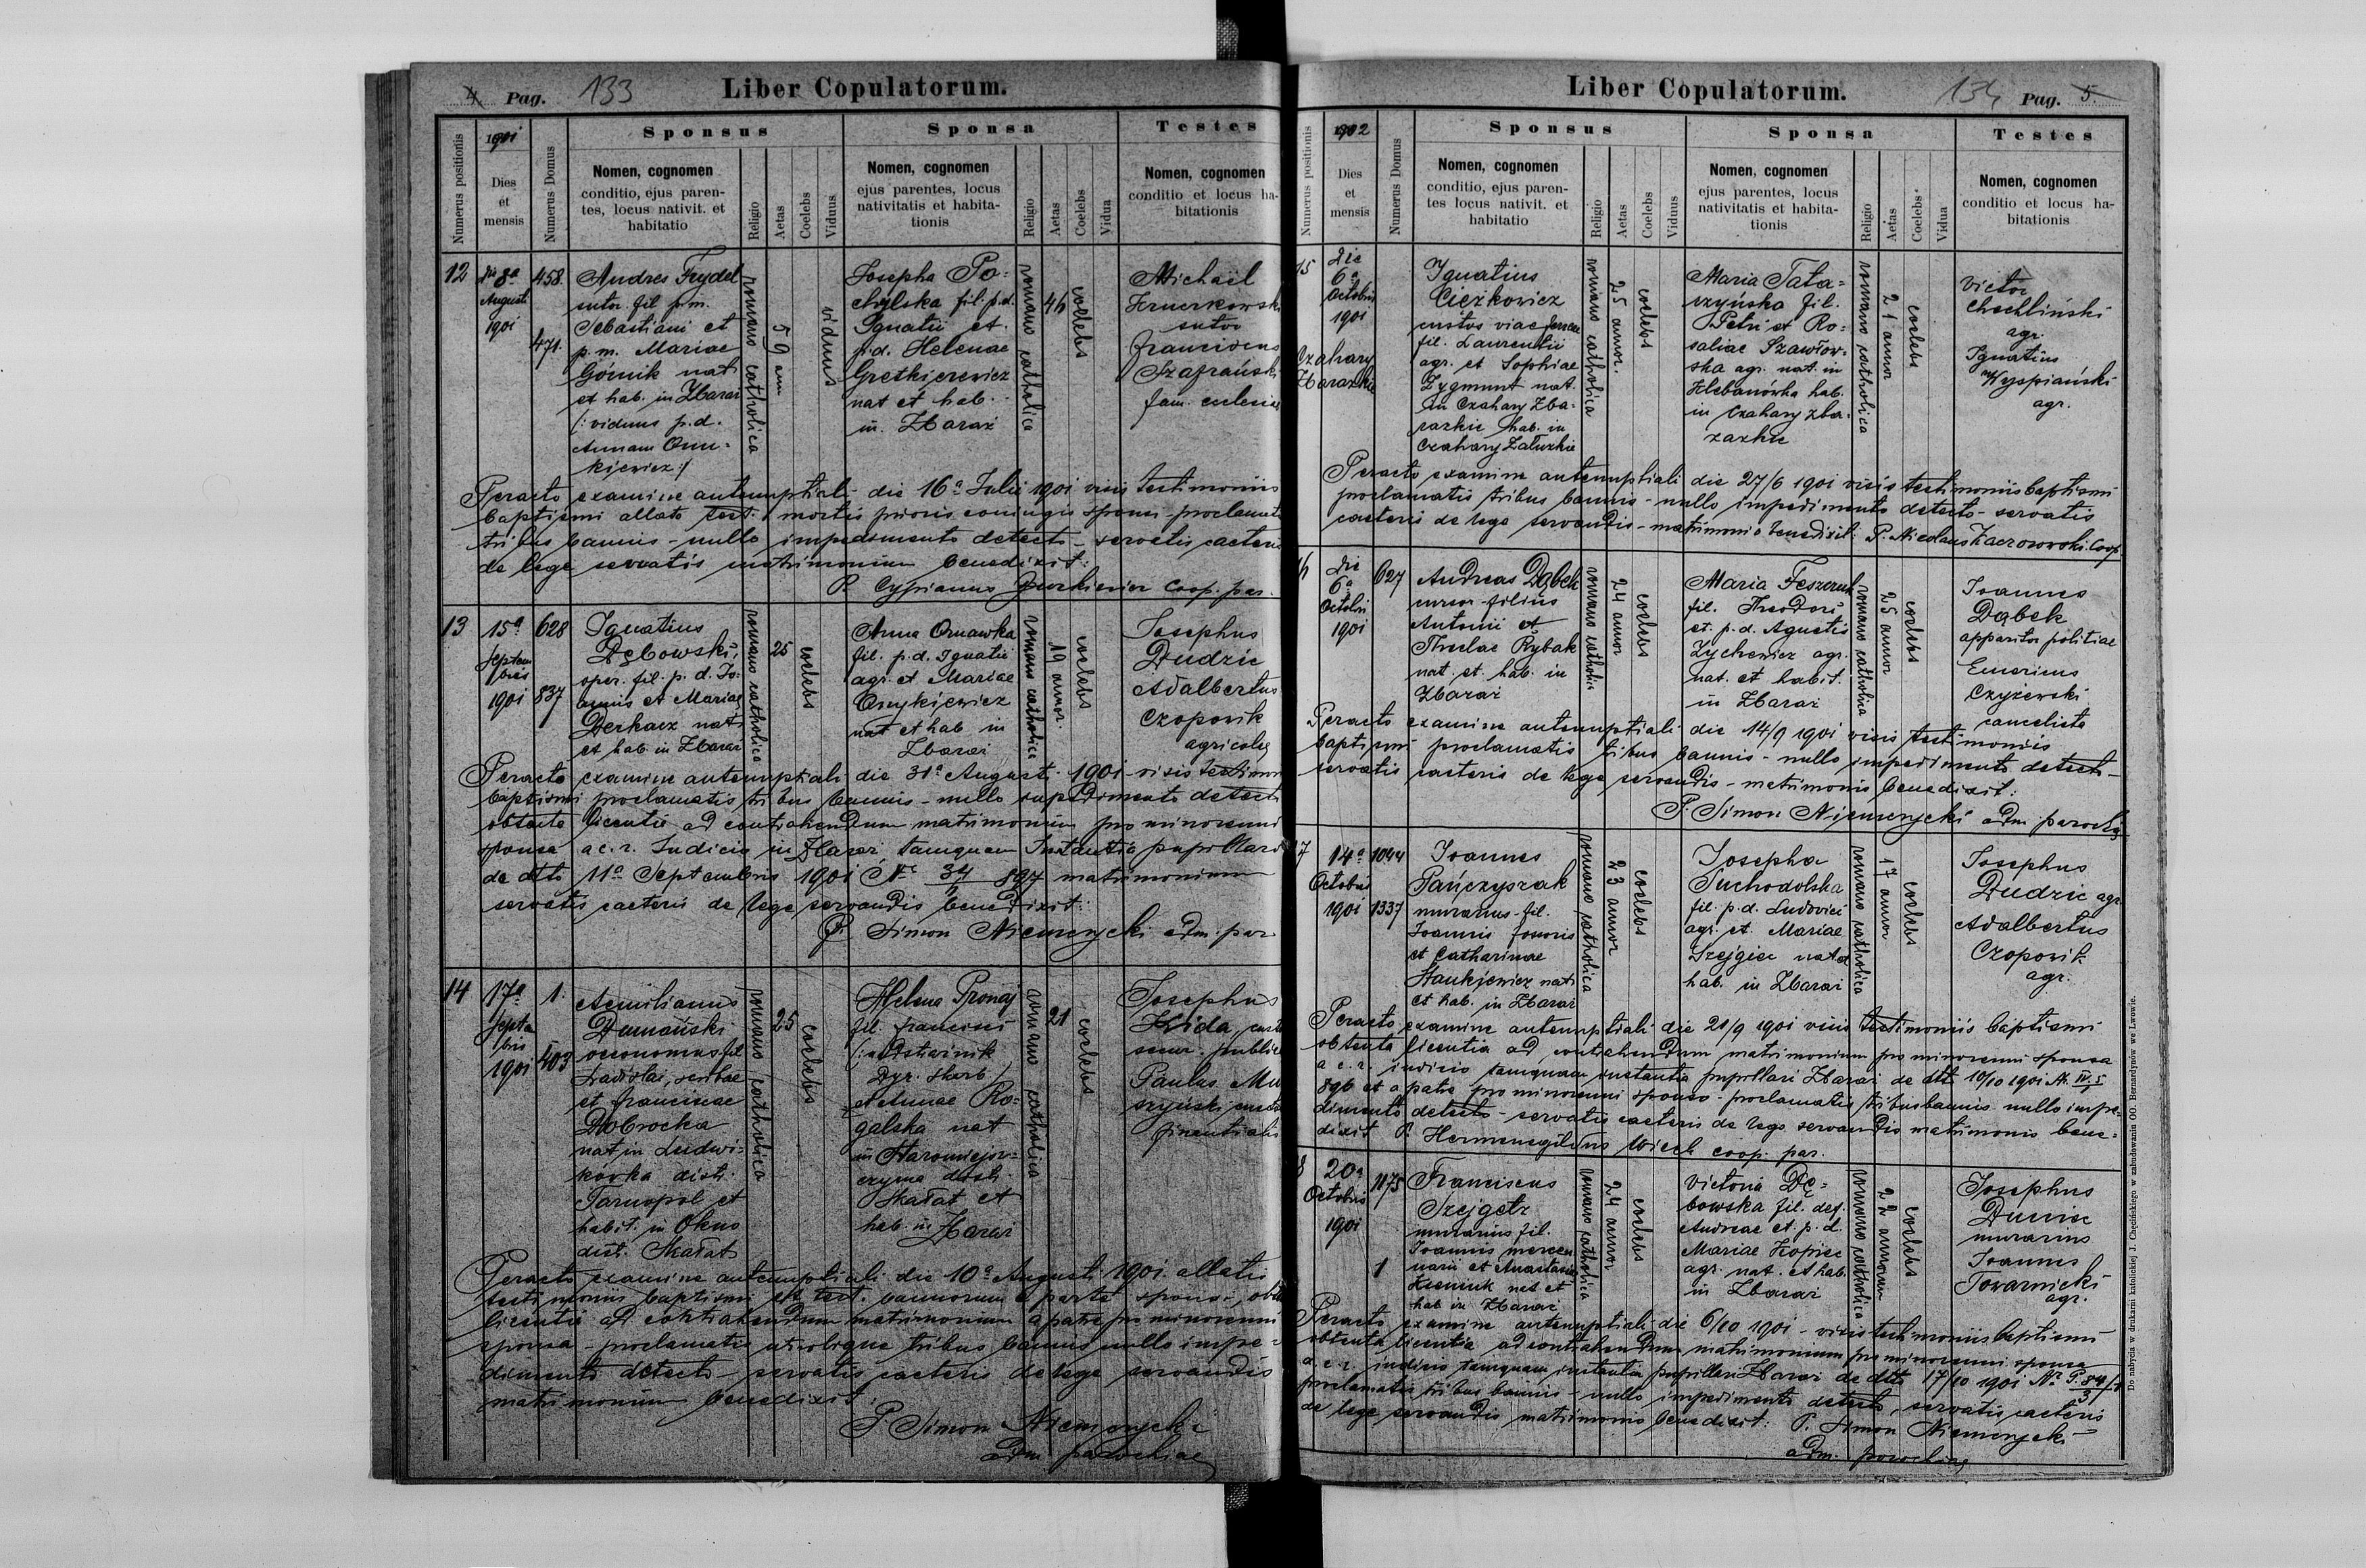 4. Pag. 133 Liber Copulatorum.
Numerus positionis
1901
Dies
et
mensis
Numerus Domus
Sponsus
Nomen, cognomen
conditio, ejus paren-
tes, locus nativit. et
habitatio
Religio
Aetas
Coelebs
Viduus
Sponsa
Nomen, cognomen
ejus parentes, locus
nativitatis et habita-
tionis
Religio
Aetas
Coelebs
Vidua
Testes
Nomen, cognomen
conditio et locus ha-
bitationis
12
die 8a
Augusti
1901
458.
471.
Andreas Frydel
sutor fil. p.m.
Sebastiani et
p.m. Mariae
Górnik nat
et hab. in Zbaraż
(: viduus p.d.
Annam
kiewicz :)
romano catholica
59 ann
viduus
Josepha Po-
chylska fil. p.d.
Ignatii et
p.d. Helenae
Gretkierewicz
nat et hab.
in Zbaraż
romano catholica
46
coelebs
Michaël
sutor
Franciscus
Szafrański
fam. ecclesiae
Peracto examine antenuptiali die 16a Julii 1901 visis testimoniis
baptismi allato test. mortis prioris coniugis sponsi - proclamatis
tribus bannis - nullo impedimento detecto - servatis caeteris
de lege servatis matrimonium benedixit:
P. Cyprianus coop. par.
13
15a
Septem
bris
1901
628
837
Ignatius
Dębowski,
oper. fil. p. d. Jo-
annis et Mariae
Derkacz nat
et hab. in Zbaraż
romano catholica
25
coelebs
Anna
fil. p.d. Ignatii
agr. et Mariae
nat et hab in
Zbaraż
romano catholica
19 annor.
coelebs
Josephus
Dudzic
Adalbertus
Czopowik
agricolae
Peracto examine antenuptiali die 31a Augusti 1901 - visis testimon
baptismi proclamatis tribus bannis - nullo impedimento detecto
obtenta licentia ad contrahendum matrimonium pro minorenni
sponsa a c. r. Judicio in Zbaraż, tamquam Instantia pupillari
de dtto 11a Septembris 1901 Nr 34 897 matrimonium
servatis caeteris de lege servandis benedixit:
P. Simon Niemczycki adm. par
14
17a
Septe
bris
1901
1.
403
Aemilianus
Dumański
oeconomus fil
Ladislai, scribae
et Franciscae
Dobrocka
nat in Ludwi-
kówka distr.
Tarnopol et
habit. in Okno
distr. Skałat
romano catholica
25
coelebs
Helena Pronaj
fil. Francisci
Dyr. skarb)
et Annae Ro-
galska nat
in Staromiejsz-
czyzna distr
Skałat et
hab. in Zbaraż
romano catholica
21
coelebs
Josephus
Paulus
Peracto examine antenuptiali die 10a Augusti 1901. allatis
testimoniis baptismi et test. bannorum a parte sponsi, obte
licentia ad contrahendum matrimonium a patre pro minorenni
sponsa - proclamatis utrobique tribus bannis nullo impe-
dimento detecto - servatis caeteris de lege servandis
matrimonium benedixit:
P. Simon Niemczycki
adm. parochiae
Liber Copulatorum. 134 Pag. 5.
Numerus positionis
1902
Dies
et
mensis
Numerus Domus
Sponsus
Nomen, cognomen
conditio, ejus paren-
tes locus nativit. et
habitatio
Religio
Aetas
Coelebs
Viduus
Sponsa
Nomen, cognomen
ejus parentes, locus
nativitatis et habita-
tionis
Religio
Aetas
Coelebs
Vidua
Testes
Nomen, cognomen
conditio et locus ha-
bitationis
15
die
6a
Octobris
1901
Czahary
Zbarazkie
Ignatius
Ciezkowicz
custos viae ferreae
fil. Laurentii
agr. et Sophiae
Zygmunt nat.
in Czahary Zba-
razkie hab. in
Czahary Załuzkie
romano catholica
25 annor.
coelebs
Maria Tata-
rzyńska fil.
Petri et Ro-
saliae Szawłow-
ska agr. nat. in
Hlebanówka hab.
in Czahary zba-
razkie
romano catholica
21 annor
coelebs
Victor
Chochliński
agr.
Ignatius
Wyspiański
agr.
Peracto examine antenuptiali die 27/6 1901 visis testimoniis baptismi
proclamatis tribus bannis - nullo impedimento detecto - servatis
caeteris de lege servandis - matrimonio benedixit: P. Nicolaus Coop.
16
die
6a
Octobri
1901
627
Andreas Dąbek
cursor filius
Antonii et
Theclae Rybak
nat. et. hab. in
Zbaraż
romano catholica
24 annor
coelebs
Maria
fil. Theodori
et. p.d. Agnetis
Zychewicz agr.
nat. et habit.
in Zbaraż
romano catholica
25 annor
coelebs
Joannes
Dąbek
apparitor politiae
Emericus
Czyżewski
cancelista
Peracto examine antenuptiali die 14/9 1901 visis testimoniis
baptismi proclamatis tribus bannis - nullo impedimento detecto -
servatis caeteris de lege servandis - matrimonio benedixit:
P. Simon Niemczycki adm. parochiae
17
14a
Octobris
1901
1044
1337
Joannes
Pańczyszak
murarius - fil.
Joannis fossoris
et Catharinae
Stankiewicz nat
et hab. in Zbaraż
romano catholica
23 annor
coelebs
Josepha
Suchodolska
fil. p.d. Ludovici
agr. et. Mariae
Szejgiec nata
hab. in Zbaraż
romano catholica
17 annor
coelebs
Josephus
Dudzic agr
Adalbertus
Czopowik
agr.
Peracto examine antenuptiali die 21/9 1901 visis testimoniis baptismi
obtenta licentia ad contrahendum matrimonium pro minorenni sponsa
a c. r. iudicio tamquam instantia pupillari Zbaraż de dtt 10/10 1901
896 et a patre pro minorenni sponso - proclamatis tribus bannis nullo impe-
dimento detecto - servatis caeteris de lege servandis matrimonio bene-
dixit P. Hermenegildus Wiech coop. par.
18
20a
Octobris
1901
1175
1
Franciscus
Szejgetz
murarius fil.
Joannis mercen
narii et Anastasiae
nat et
hab in Zbaraż
romano catholica
24 annor
coelebs
Victoria Dę-
bowska fil. def.
Andreae et. p. d.
Mariae Kopiec
agr. nat. et hab.
in Zbaraż
romano catholica
22 annorum
coelebs
Josephus
murarius
Joannes
Towarnicki
agr.
Peracto examine antenuptiali die 6/10 1901 - visis testimoniis baptismi
obtenta licentia ad contrahendum matrimonium pro minorenni sponsa
a c. r. iudicio tamquam instantia pupillari Zbaraż de dtto 17/10 1901 Nr P. 84/1
3
proclamatis tribus bannis - nullo impedimento detecto, servatis caeteris
de lege servandis matrimonio benedixit: P. Simon Niemczycki
adm. parochiae
Do nabycia w drukarni katolickiej J. Chęcińskiego w zabudowaniu OO. Bernardynów we Lwowie.